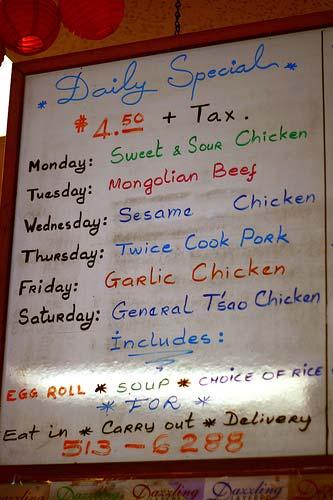 * Daily Special *
$4.50 + Tax.
Monday: Sweet & Sour Chicken
Tuesday: Mongolian Beef
Wednesday: Sesame Chicken
Thursday: Twice Cook Pork
Friday: Garlic Chicken
Saturday: General T'sao Chicken
Includes:
EGG ROLL * SOUP * CHOICE OF RICE
* FOR *
Eat in * Carry out * Delivery
513-6288
Dazzling Dazzling Dazzling